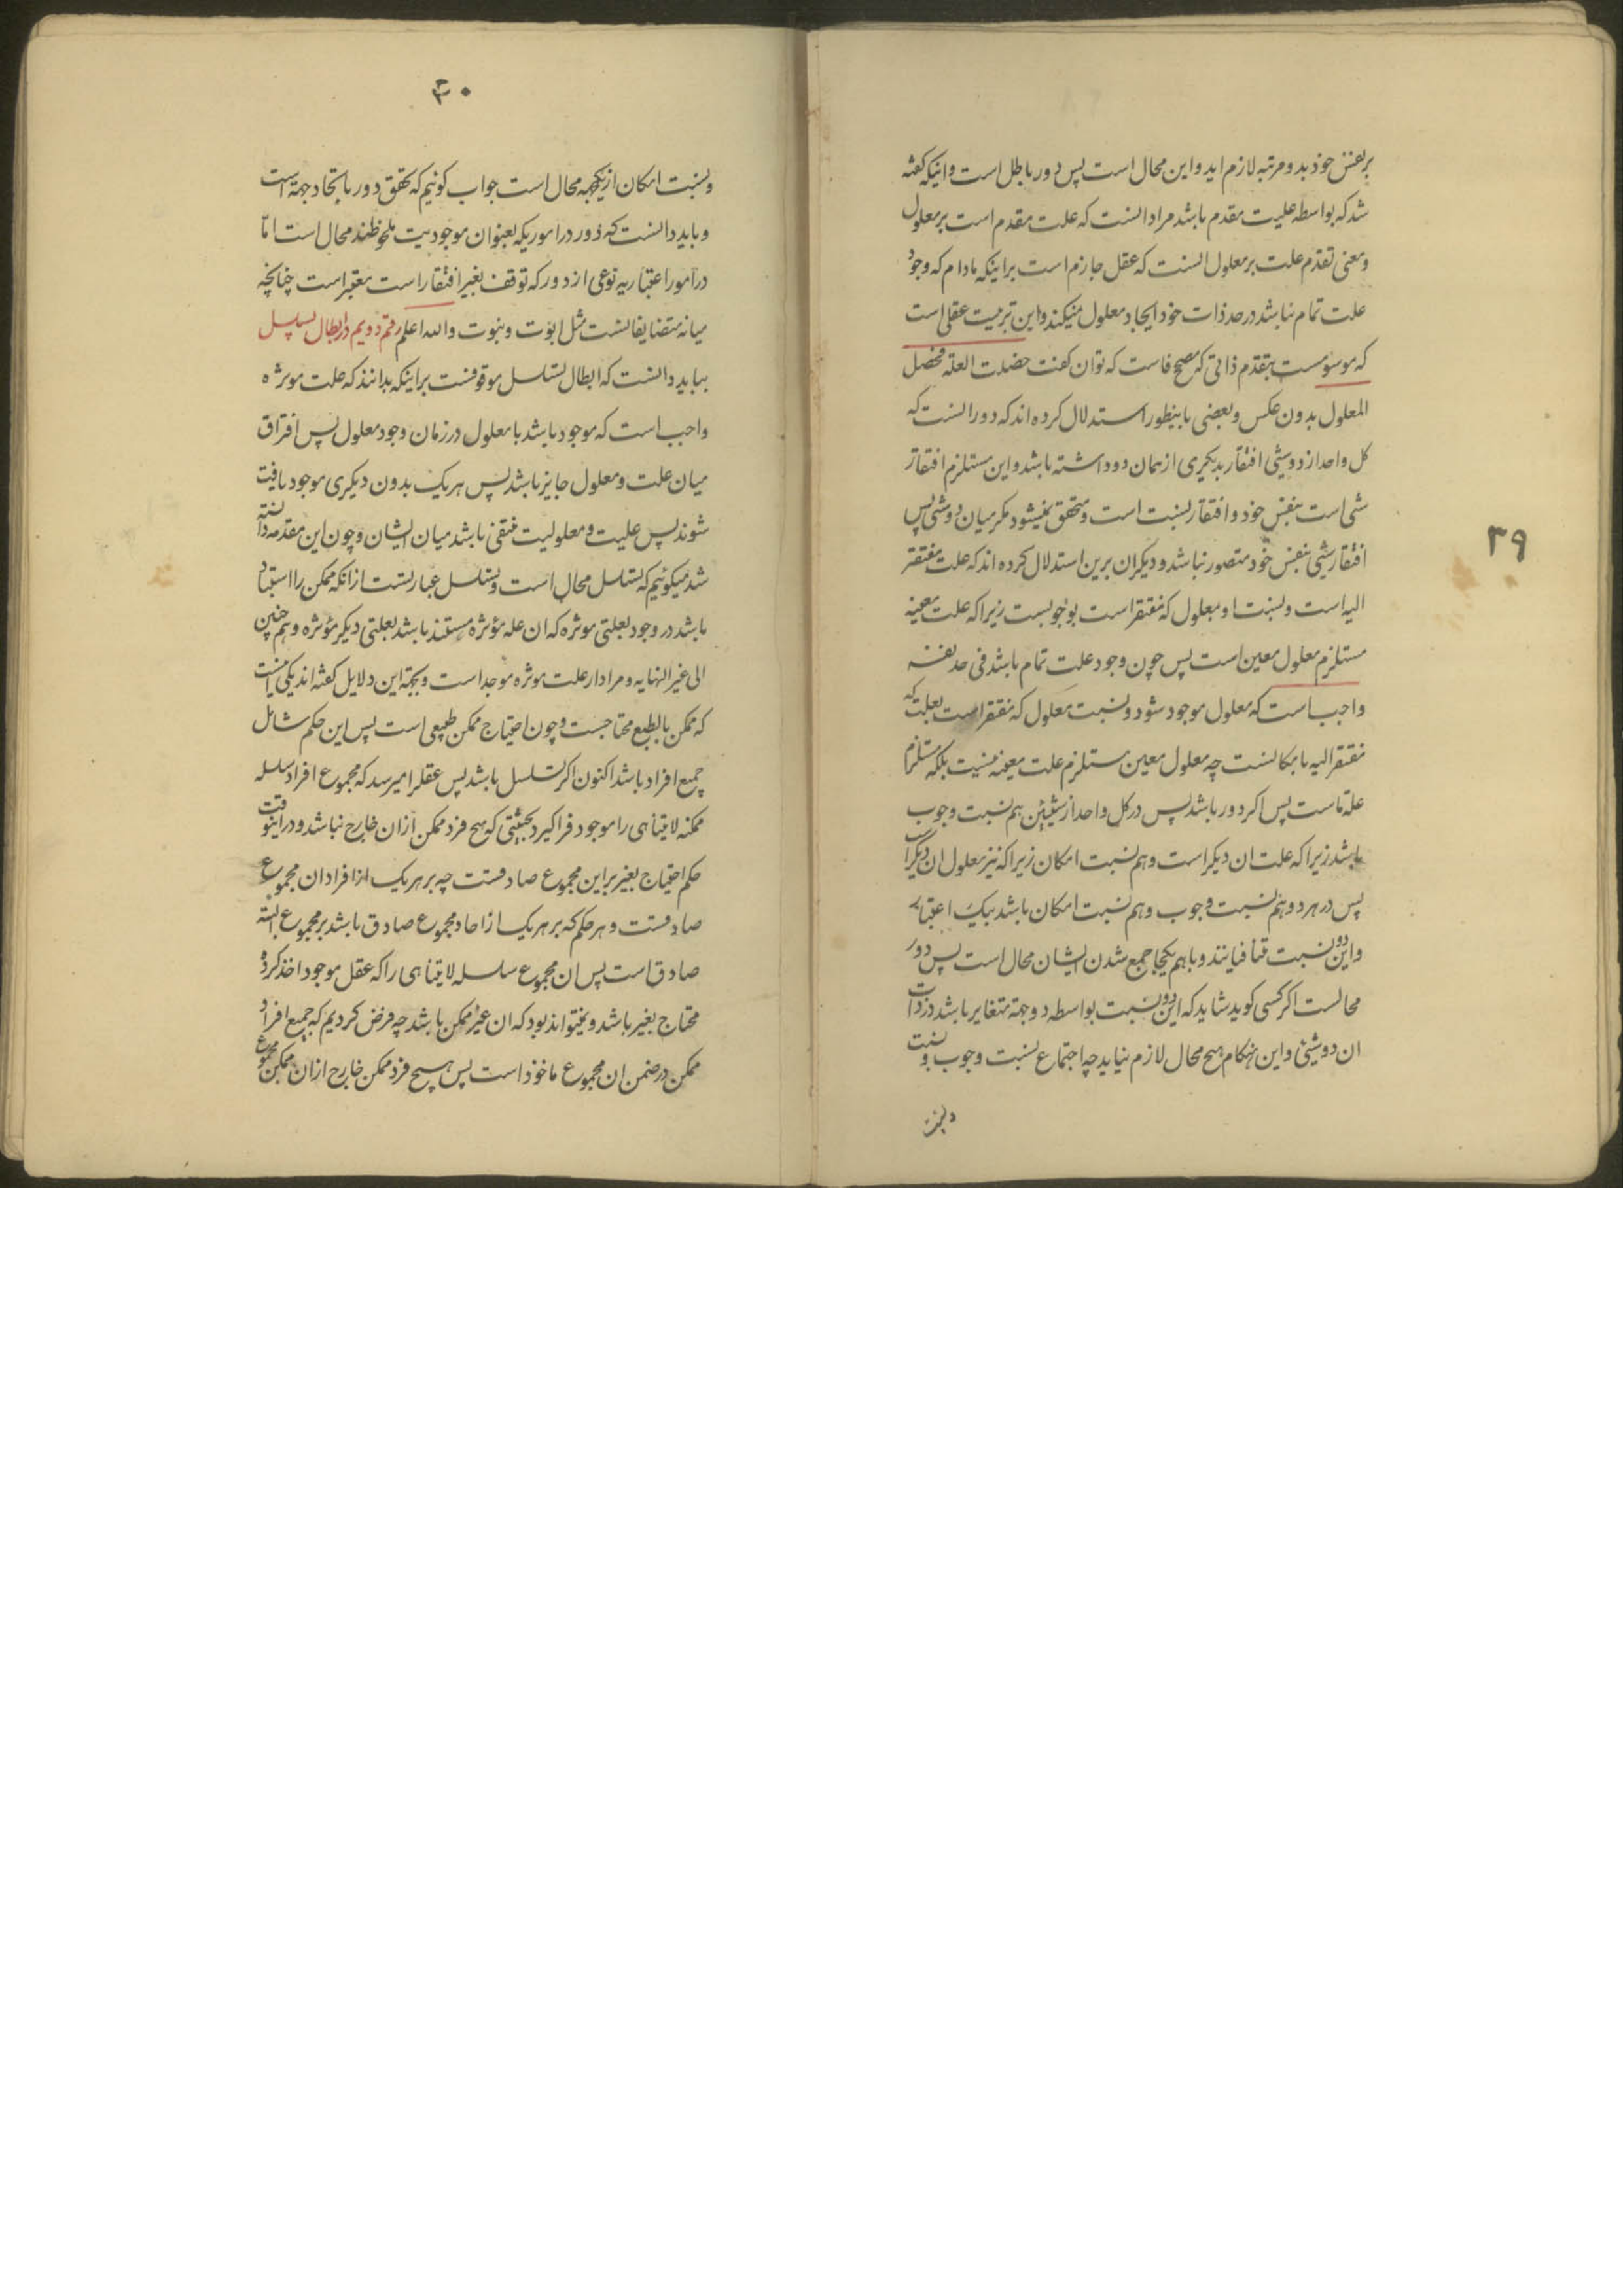 ۳۹
بر نفس خود بدو مرتبه لازم اید و این محال است پس دور باطل است و اینکه کفته
شد که بواسطه علیت مقدم باشد مراد انست که علت مقدم است بر معلول
و معنی تقدم علت بر معلول انست که عقل جازم است بر اینکه مادام که وجود
علت تمام نباشد در حد ذات خود ایجاد معلول نمیکند و این ترتیب عقلی است
که موسومست بتقدم ذاتی که مصحح فاست که توان کفت حصلت العلة فحصل
المعلول بدون عکس و بعضی باینطور استدلال کرده اند که دور انست که
کل واحد از دو شی افتقار بدیکری از همان دو داشته باشد و این مستلزم افتقار
شی است بنفس خود و افتقار نسبت است و متحقق نمیشود مکر میان دو شی پس
افتقار شی بنفس خود متصور نباشد و دیکران برین استدلال کرده اند که علت مفتقر
الیه است و نسبت او بمعلول که مفتقر است بوجوبست زیرا که علت معینه
مستلزم معلول معین است پس چون وجود علت تمام باشد فی حد نفسه
واجب است که معلول موجود شود و نسبت معلول که مفتقر است بعلت که
مفتقر الیه بامکانست چه معلول معین مستلزم علت معینه نیست بلکه مستلزم
علة ماست پس اکر دور باشد پس در کل واحد از شیئین هم نسبت وجوب
باشد زیرا که علت ان دیکر است و هم نسبت امکان زیرا که نیز معلول ان دیکر است
پس در هر دو هم نسبت وجوب و هم نسبت امکان باشد بیک اعتبار
و این دو نسبت متنافیانند و باهم یکجا جمع شدن ایشان محال است پس دور
محالست اکر کسی کوید شاید که این دو نسبت بواسطه دو جهة متغایر باشد در ذات
ان دو شیئ و این هنکام هیچ محال لازم نیاید چه اجتماع نسبت وجوب و نسبت
و نسبت
۴۰
و نسبت امکان از یکجهة محال است جواب کوئیم که تحقق دور باتحاد جهة است
و باید دانست که دور در اموریکه بعنوان موجودیت ملحوظند محال است اما
در امور اعتباریه نوعی از دور که توقف بغیر افتقار است معتبر است چنانچه
میانه متضایفانست مثل ابوت و بنوت والله اعلم رقم دویم در ابطال تسلسل
بباید دانست که ابطال تسلسل موقوفست بر اینکه بدانند که علت موثره
واجب است که موجود باشد با معلول در زمان وجود معلول پس افتراق
میان علت و معلول جایز باشد پس هر یک بدون دیکری موجود یافت
شوند پس علیت و معلولیت منتفی باشد میان ایشان و چون این مقدمه دانسته
شد میکوئیم که تسلسل محال است و تسلسل عبارتست از انکه ممکن را استناد
باشد در وجود بعلتی موثره که ان علة مؤثره مستند باشد بعلتی دیکر مؤثره و هم چنین
الی غیر النهایه و مراد از علت موثره موجد است و بجهة این دلایل کفته اند یکی انست
که ممکن بالطبع محتاجست و چون احتیاج ممکن طبیعی است پس این حکم شامل
جمیع افراد باشد اکنون اکر تسلسل باشد پس عقل را میرسد که مجموع افراد سلسله
ممکنه لایتناهی را موجود فرا کیرد بحیثیتی که هیچ فرد ممکن از ان خارج نباشد و در اینوقت
حکم احتیاج بغیر بر این مجموع صادقست چه بر هر یک از افراد ان مجموع
صادقست و هر حکم که بر هر یک از احاد مجموع صادق باشد بر مجموع البته
صادق است پس ان مجموع سلسله لایتناهی را که عقل موجود اخذ کرده
محتاج بغیر باشد و نمیتواند بود که ان غیر ممکن باشد چه فرض کردیم که جمیع افراد
ممکن در ضمن ان مجموع ماخوذ است پس هیچ فرد ممکن خارج از ان مجموع ممکن